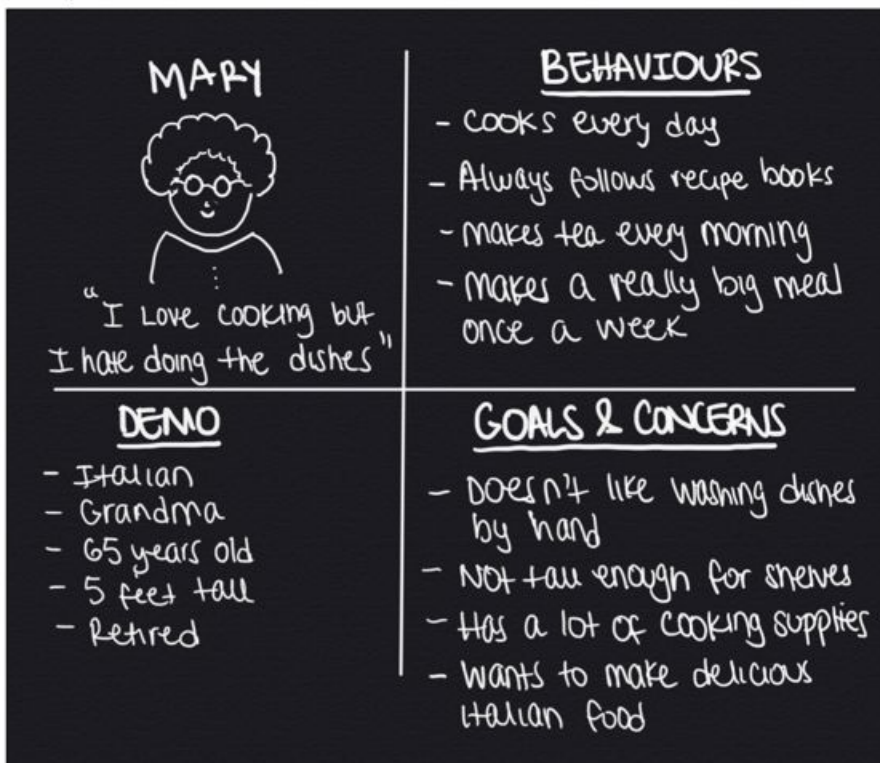 MARY
"I LOVE COOKING but
I hate doing the dishes"
BEHAVIOURS
- COOKS every day
- Always follows recipe books
- Makes tea every morning
- Makes a really big meal
once a week
DEMO
- Italian
- Grandma
- 65 years old
- 5 feet tall
- Retired
GOALS & CONCERNS
- Doesn't like washing dishes
by hand
- Not tall enough for shelves
- Has a lot of cooking supplies
- Wants to make delicious
Italian food